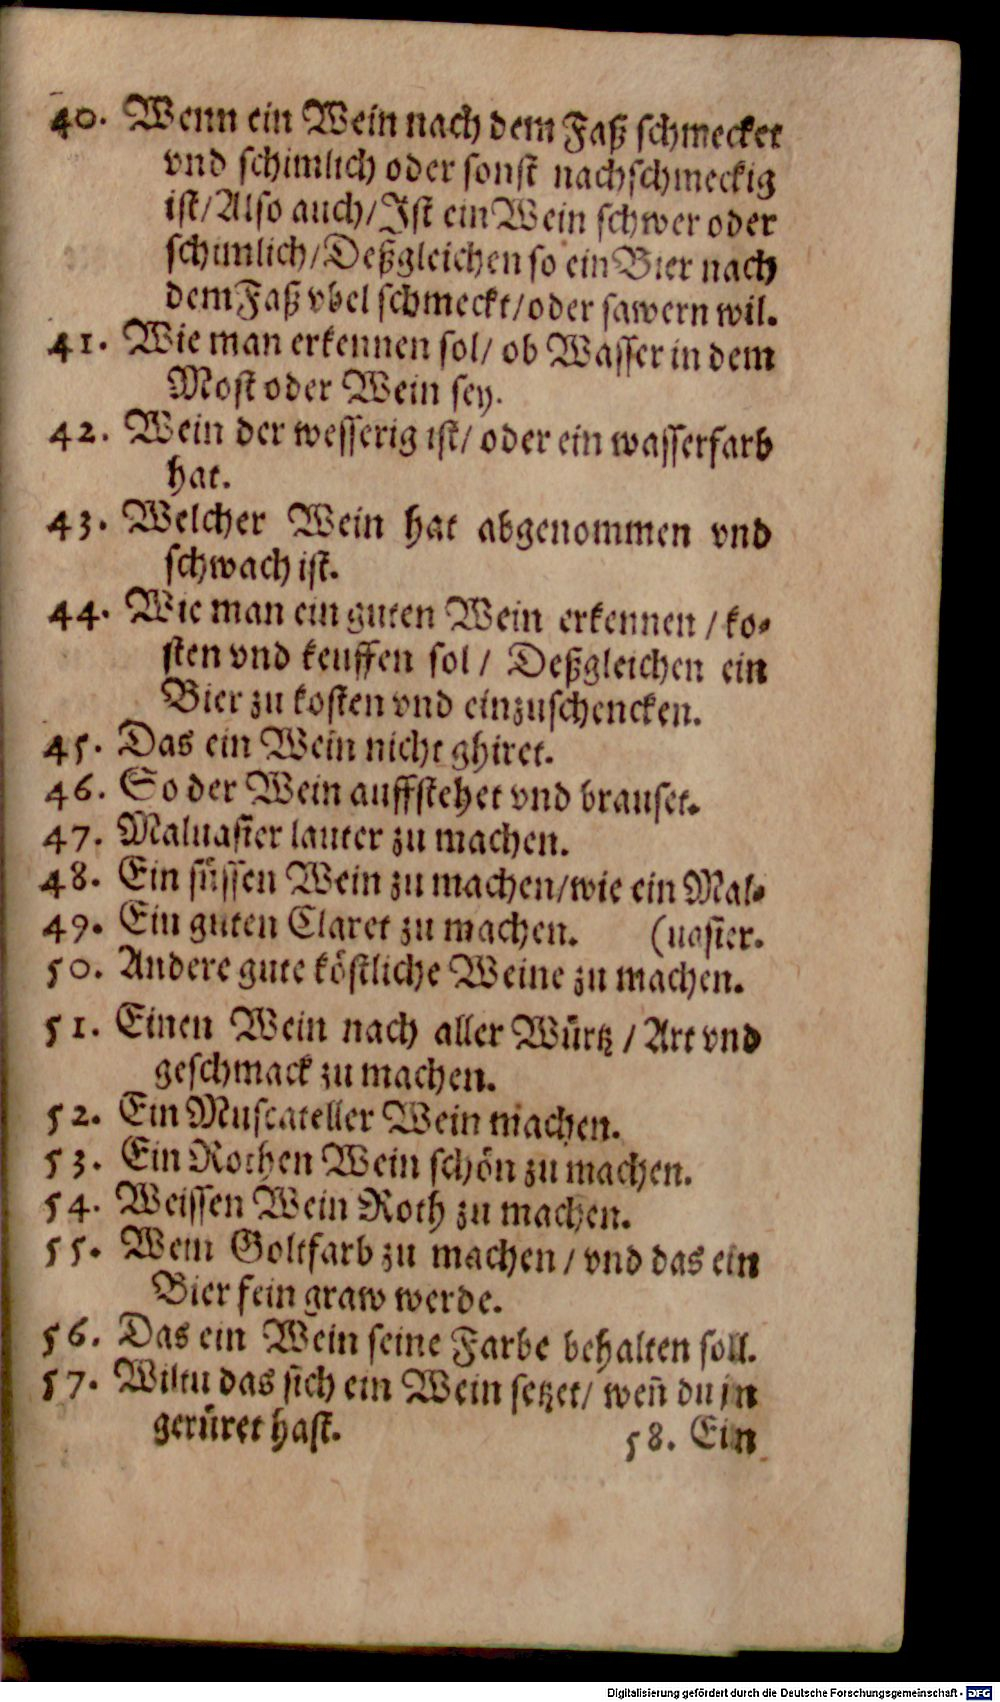 40. Wenn ein Wein nach dem Faß schmecket
vnd schimlich oder sonst nachschmeckig
ist/Also auch/Ist ein Wein schwer oder
schimlich/Deßgleichen so ein Bier nach
dem Faß vbel schmeckt/oder sawern wil.
41. Wie man erkennen sol/ ob Wasser in dem
Most oder Wein sey.
42. Wein der wesserig ist/ oder ein wasserfarb
hat.
43. Welcher Wein hat abgenommen vnd
schwach ist.
44. Wie man ein guten Wein erkennen / ko-
sten vnd keuffen sol / Deßgleichen ein
Bier zu kosten vnd einzuschencken.
45. Das ein Wein nicht ghiret.
46. So der Wein auffstehet vnd brauset.
47. Maluasier lauter zu machen.
48. Ein süssen Wein zu machen/wie ein Mal-
49. Ein guten Claret zu machen. (uasier.
50. Andere gute köstliche Weine zu machen.
51. Einen Wein nach aller Würtz / Art vnd
geschmack zu machen.
52. Ein Muscateller Wein machen.
53. Ein Rothen Wein schön zu machen.
54. Weissen Wein Roth zu machen.
55. Wein Goltfarb zu machen / vnd das ein
Bier fein graw werde.
56. Das ein Wein seine Farbe behalten soll.
57. Wiltu das sich ein Wein setzet/ weñ du jn
gerüret hast.
58. Ein
Digitalisierung gefördert durch die Deutsche Forschungsgemeinschaft - DFG